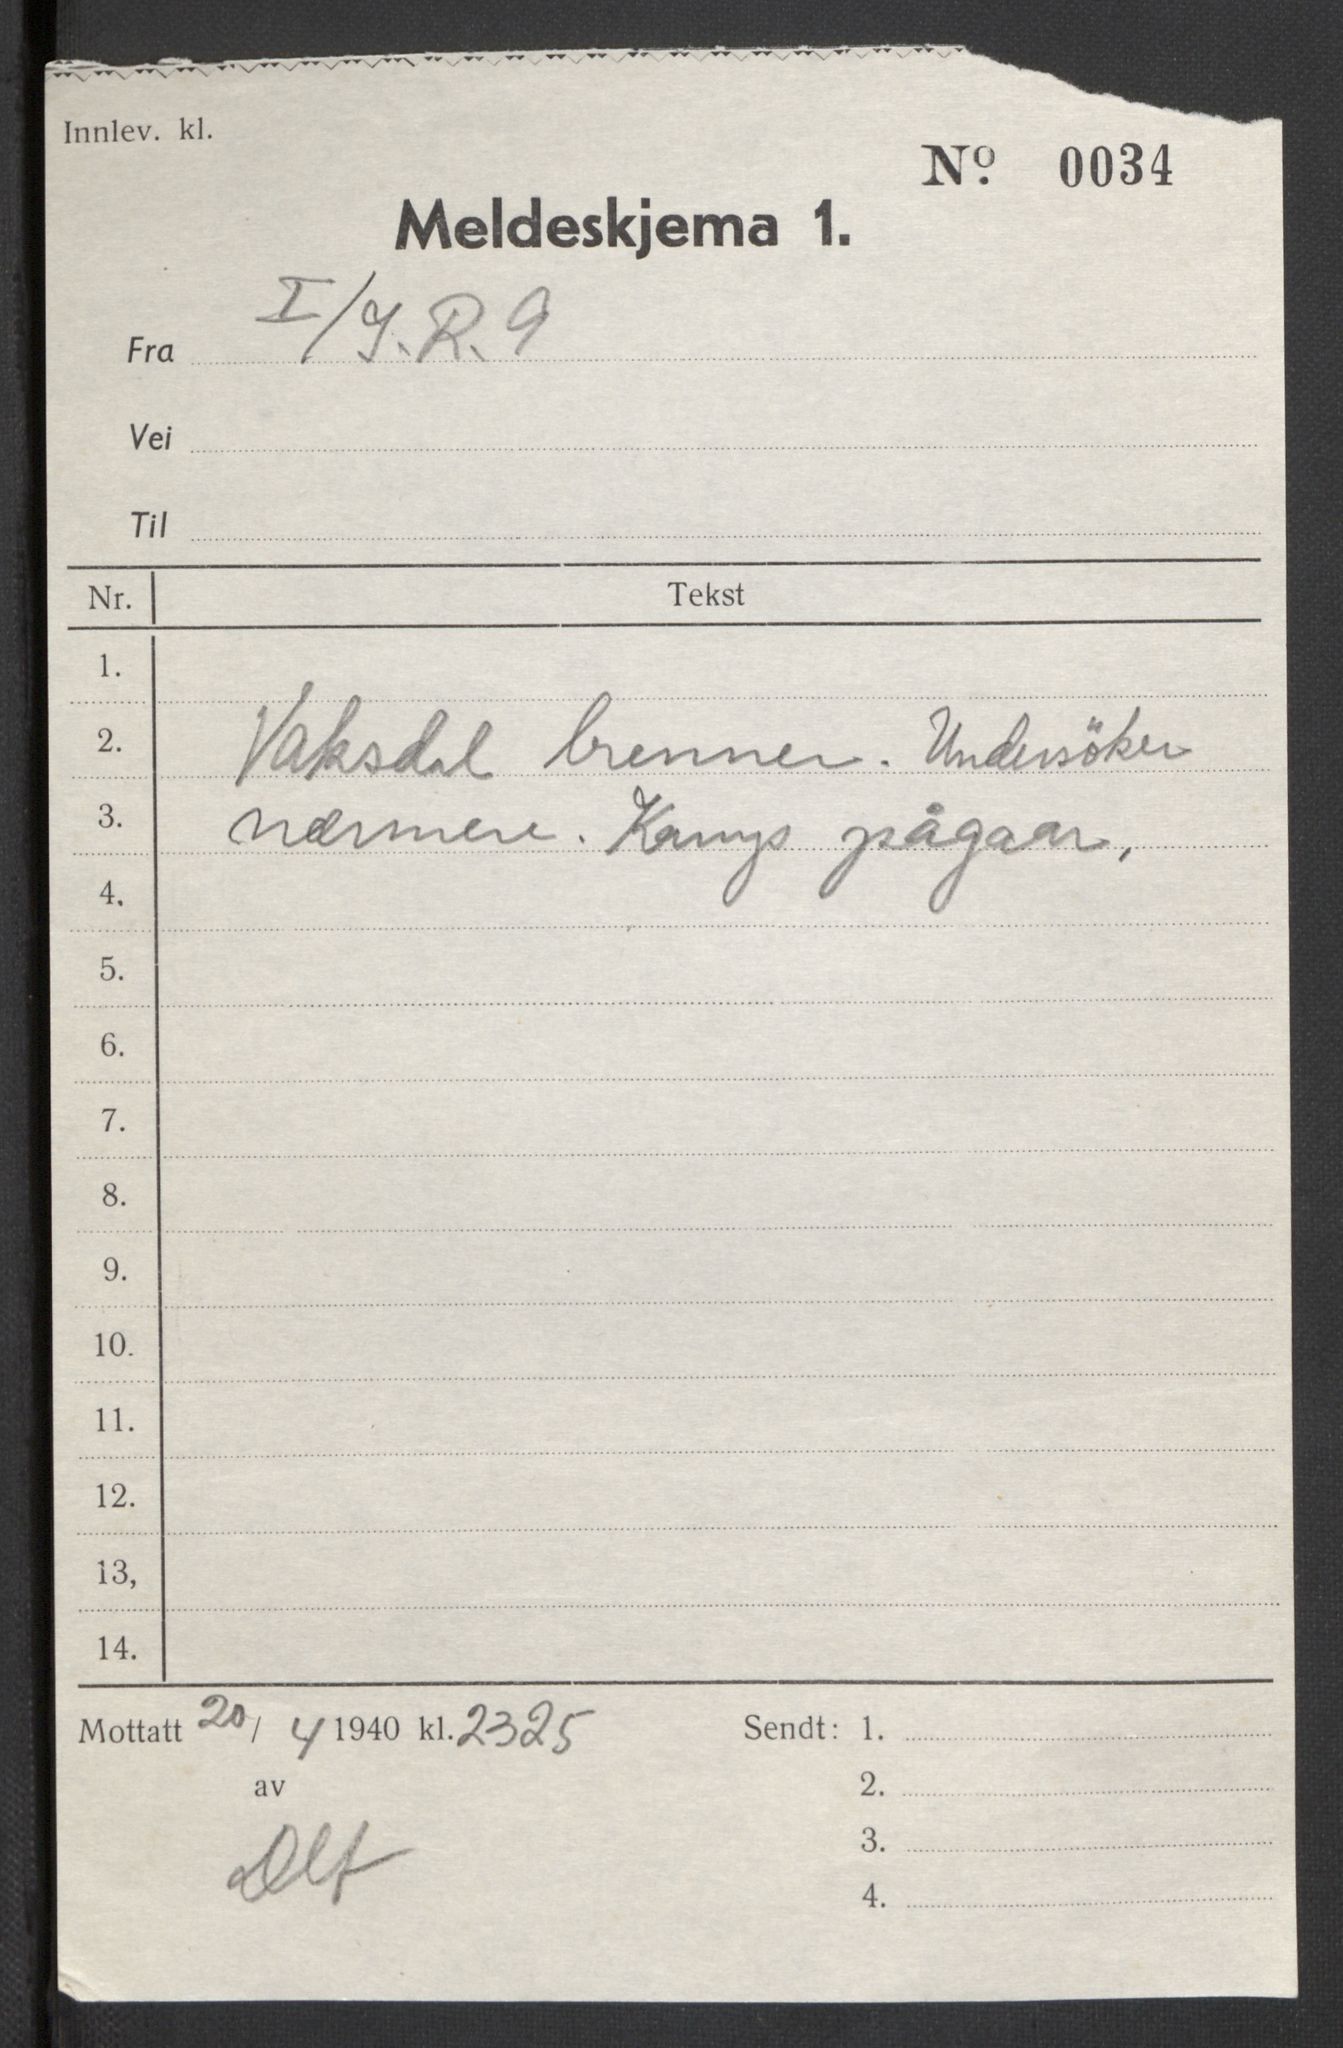 Innlev. kl.
No. 0034
Meldeskjema 1.
Fra I/J.R.9
Vei
Til
Nr. Tekst
1.
2. Vaksdal brenner. Undersöker
3. nærmere. Kamp pågaar,
4.
5.
6.
7.
8.
9.
10.
11.
12.
13,
14.
Mottatt 20/4 1940 kl. 2325 Sendt: 1.
av 2.
3.
4.